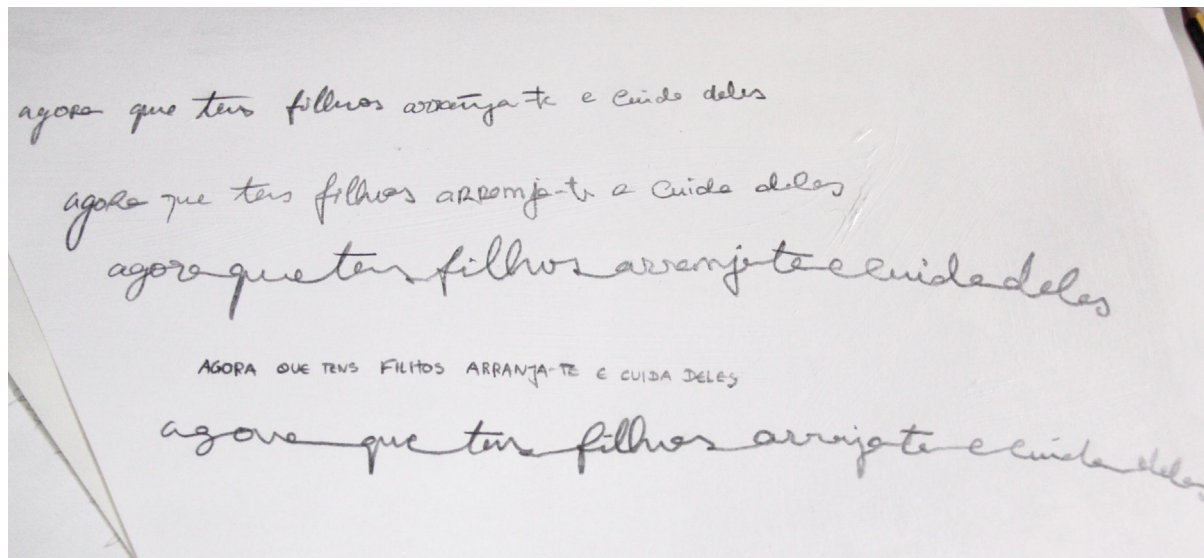 agora que tens filhos arranja-te e cuida deles
agora que tens filhos ARRanja-te e cuida deles
agora que tens filhos arranja te e cuida deles
AGORA QUE TENS FILHOS ARRANJA-TE E CUIDA DELES
agora que tens filhos arrajate e cuida deles